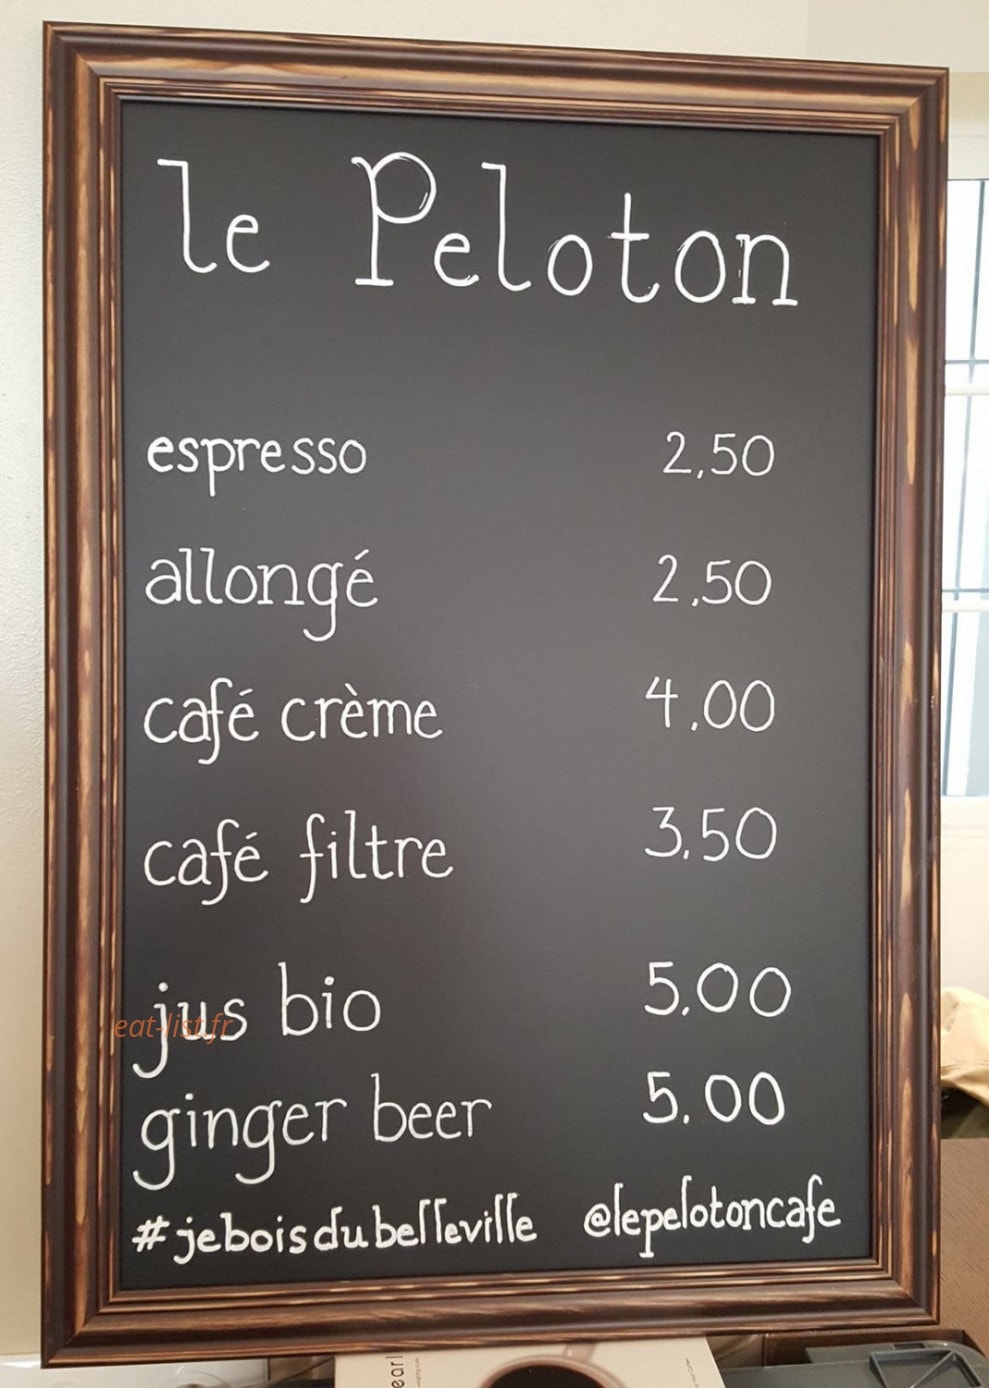 le Peloton
espresso 2,50
allongé 2,50
café crème 4,00
café filtre 3,50
jus bio 5,00
eat-list.fr
ginger beer 5,00
#jeboisdubelleville @lepelotoncafe
earl